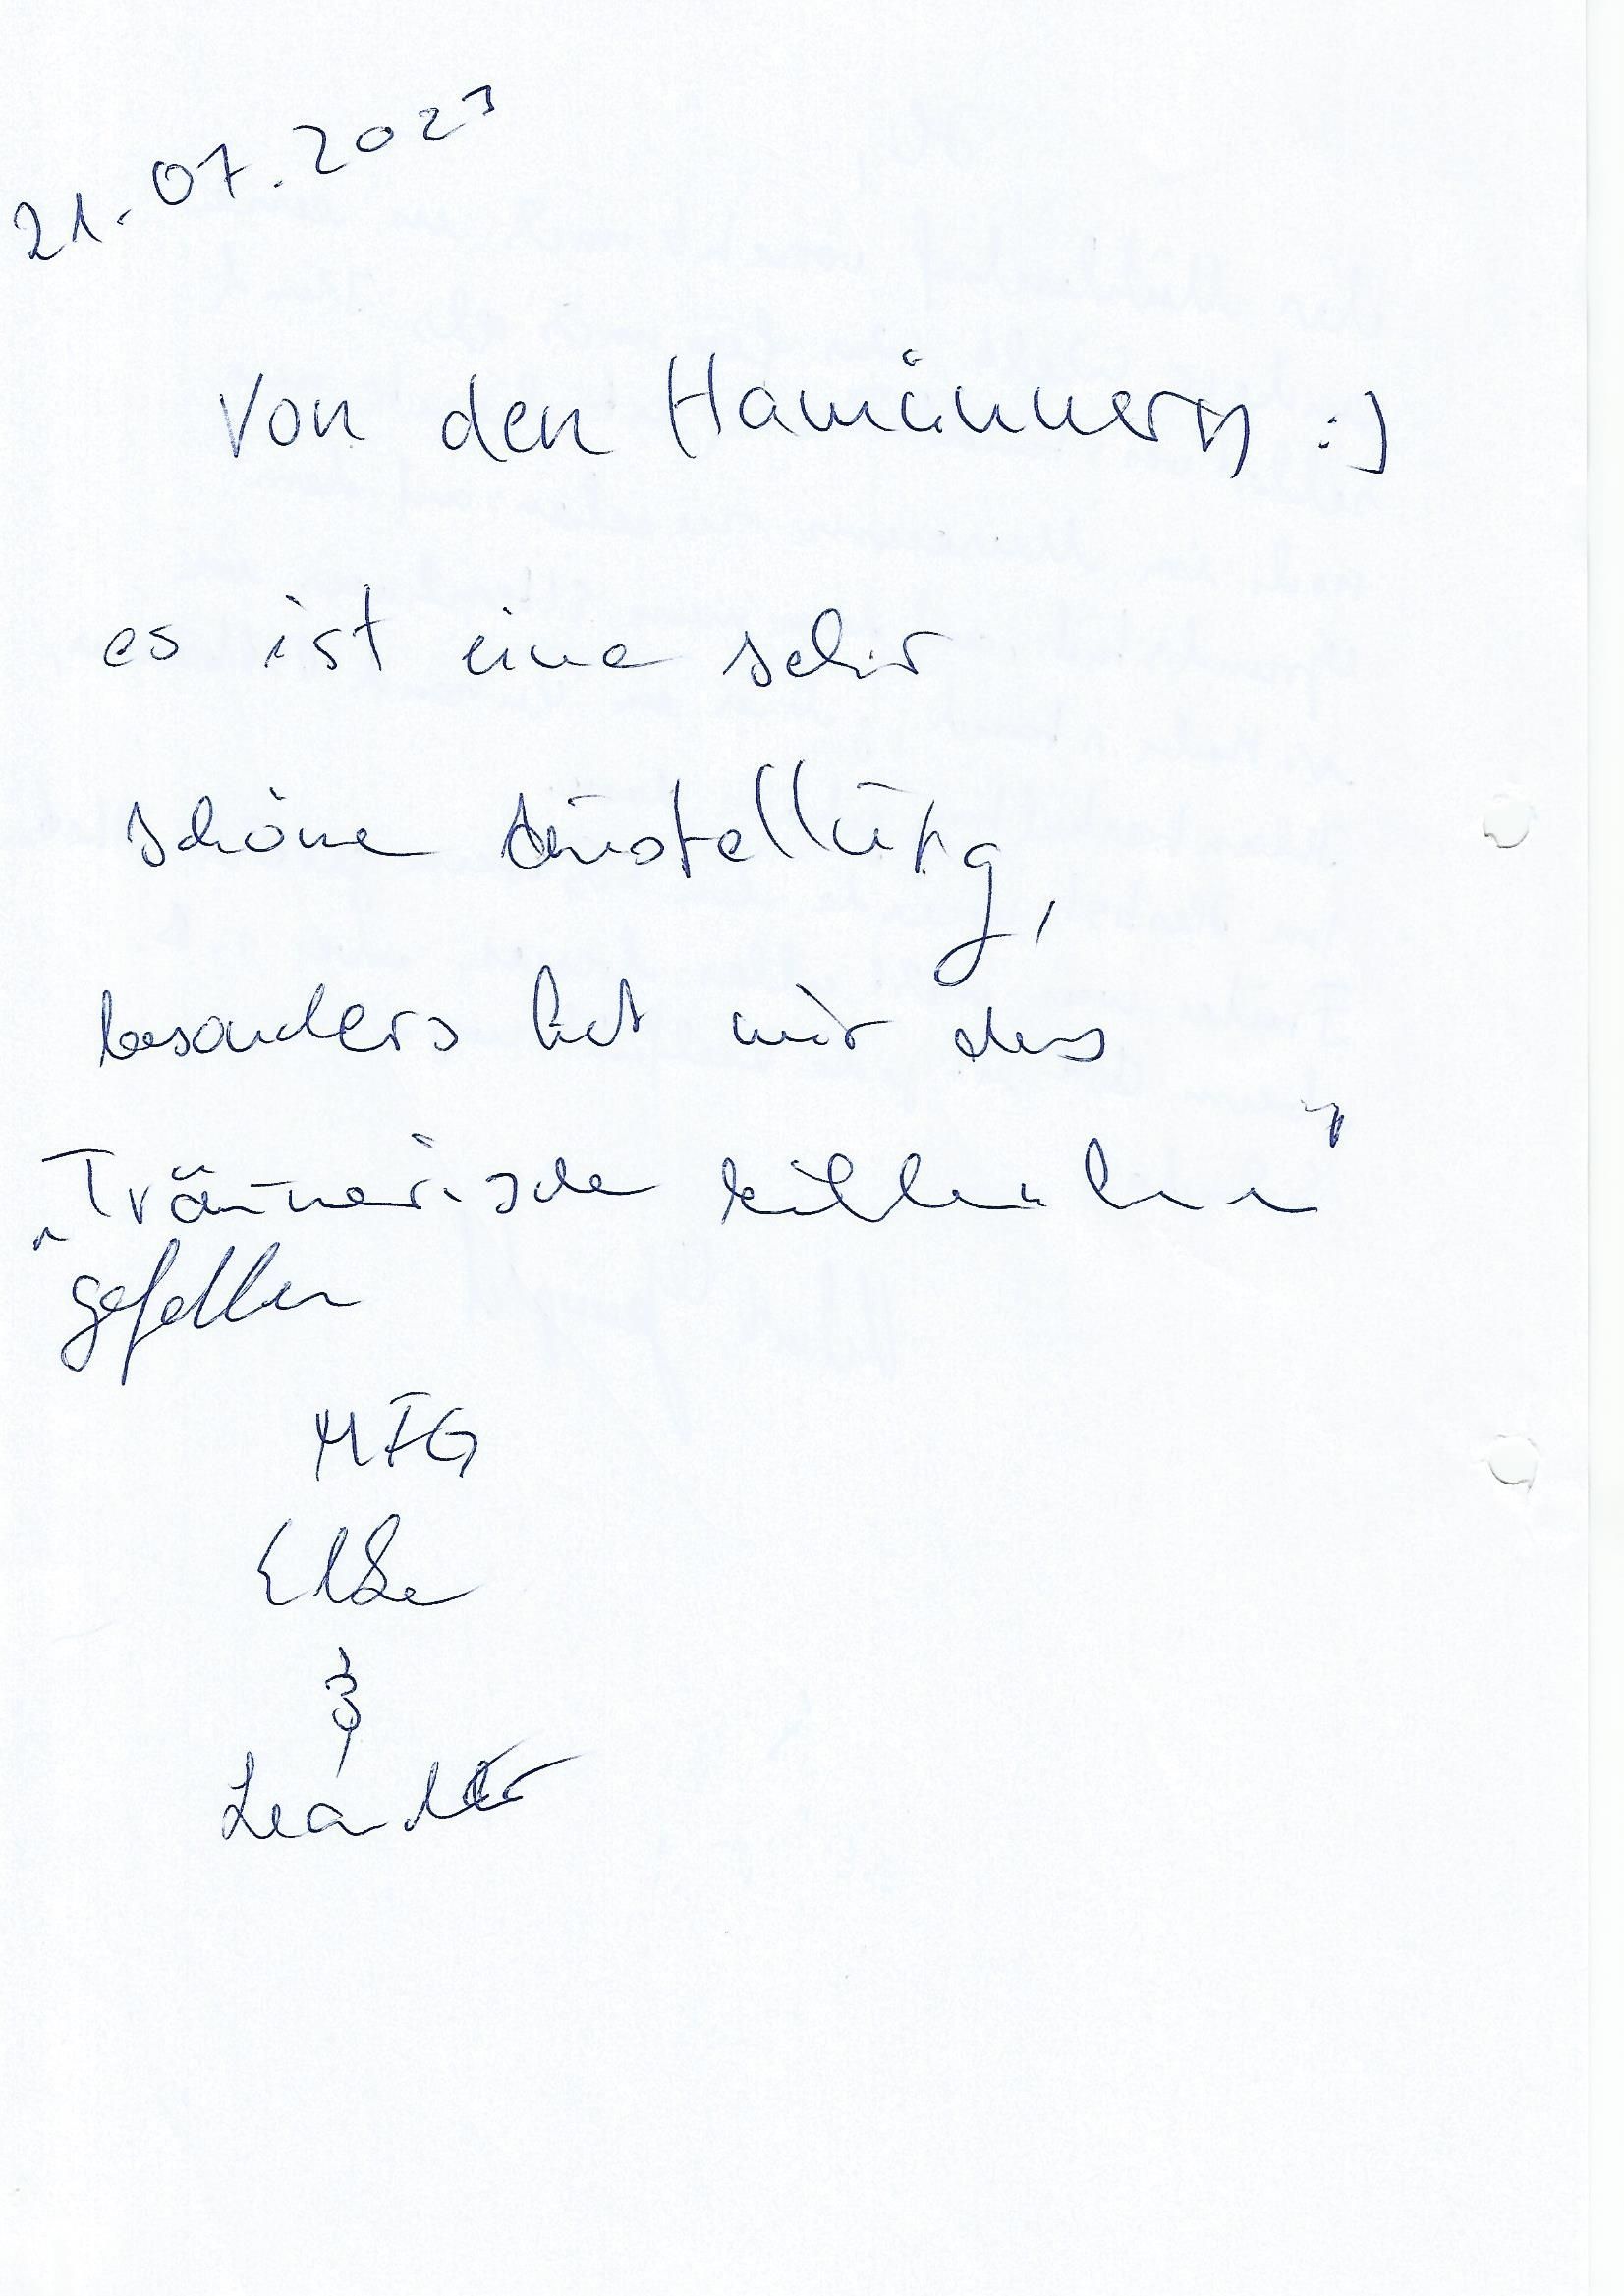 21.07.2023
Von den Hamännern :)
es ist eine sehr
schöne Ausstellung,
besonders hat mir das
„Träumerische
gefallen
MFG
Elke
&
Leander